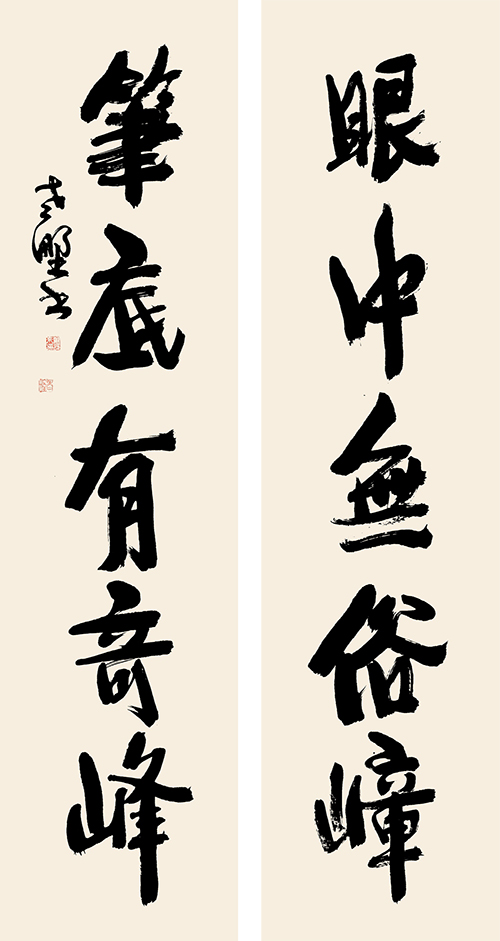 眼中無俗嶂
筆底有奇峰
书